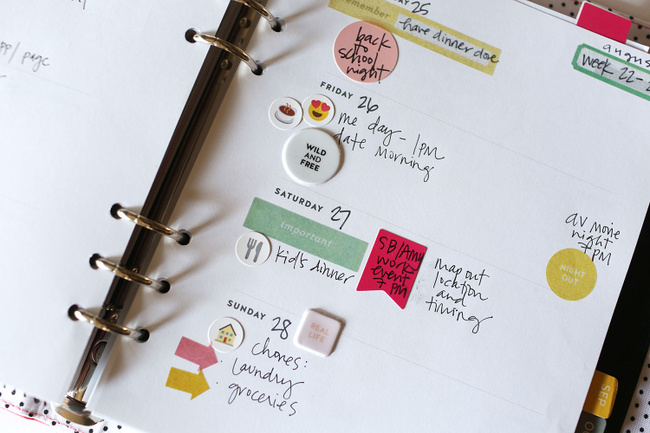 pp / page
25
remember have dinner done
back
to
school
night!
august
week 22-2
FRIDAY 26
me day - 1 PM
date morning
WILD
AND
FREE
SATURDAY 27
important
kid's dinner
SB/Amy
work
event
7 PM
map out
location
and
timing
av movie
night
7 PM
NIGHT
OUT
SUNDAY 28
REAL
LIFE
chores:
laundry
groceries
SEP